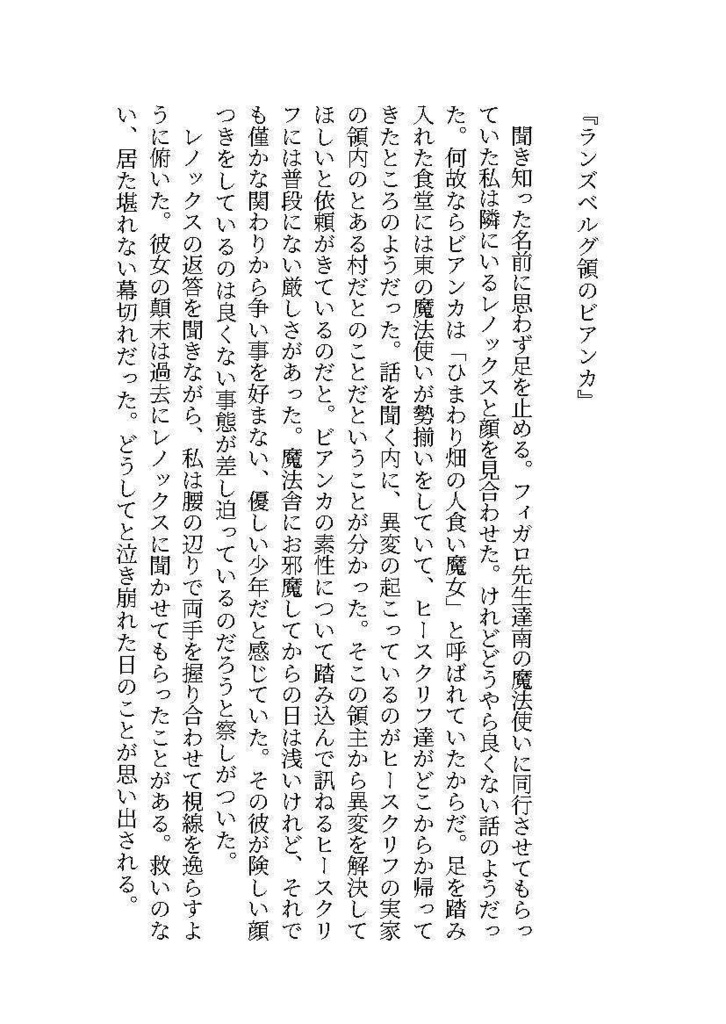 『ランズベルグ領のビアンカ』
　聞き知った名前に思わず足を止める。フィガロ先生達南の魔法使いに同行させてもらっ
ていた私は隣にいるレノックスと顔を見合わせた。けれどどうやら良くない話のようだっ
た。何故ならビアンカは「ひまわり畑の人食い魔女」と呼ばれていたからだ。足を踏み
入れた食堂には東の魔法使いが勢揃いをしていて、ヒースクリフ達がどこからか帰って
きたところのようだった。話を聞く内に、異変の起こっているのがヒースクリフの実家
の領内のとある村だとのことだということが分かった。そこの領主から異変を解決して
ほしいと依頼がきているのだと。ビアンカの素性について踏み込んで訊ねるヒースクリ
フには普段にない厳しさがあった。魔法舎にお邪魔してからの日は浅いけれど、それで
も僅かな関わりから争い事を好まない、優しい少年だと感じていた。その彼が険しい顔
つきをしているのは良くない事態が差し迫っているのだろうと察しがついた。
　レノックスの返答を聞きながら、私は腰の辺りで両手を握り合わせて視線を逸らすよ
うに俯いた。彼女の顛末は過去にレノックスに聞かせてもらったことがある。救いのな
い、居た堪れない幕切れだった。どうしてと泣き崩れた日のことが思い出される。